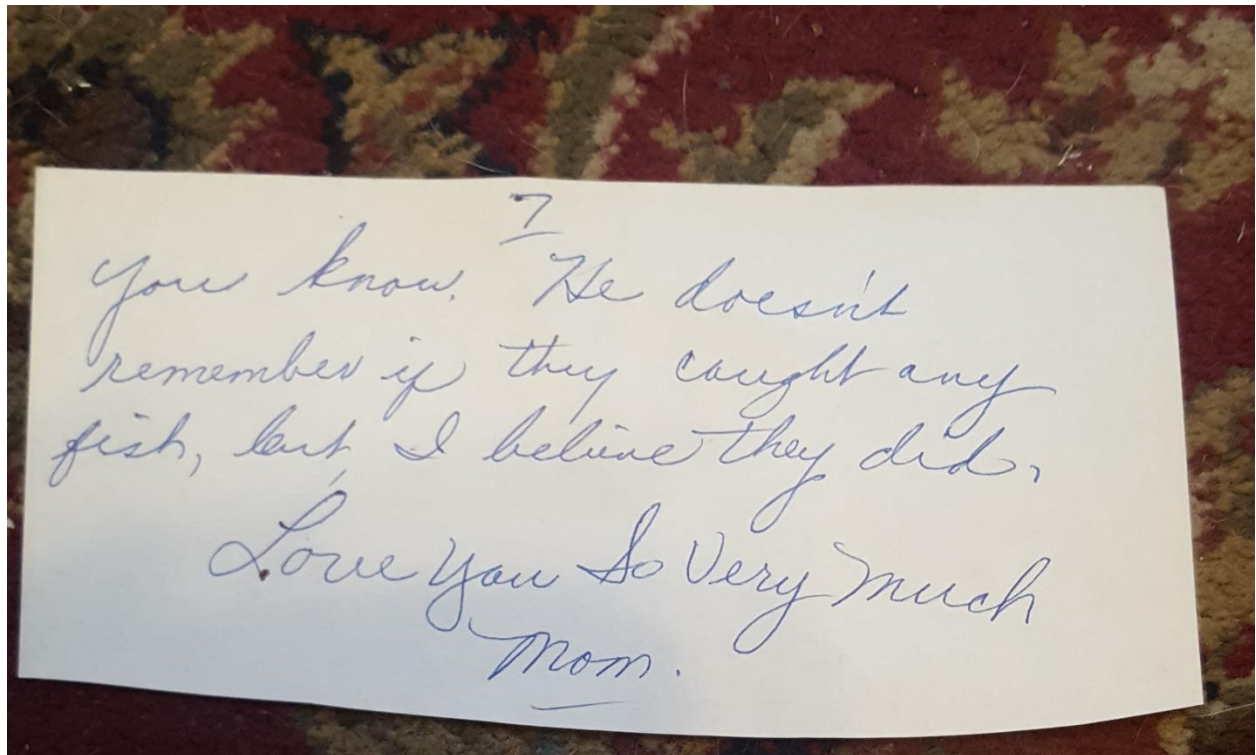 7
you know. He doesn't
remember if they caught any
fish, but, I believe they did,
Love You So Very Much
Mom.